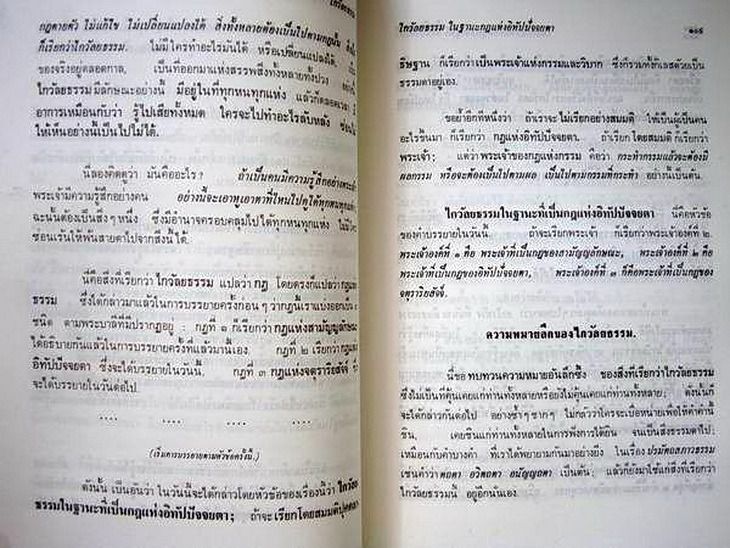 ไกวัลยธรรม
กฎตายตัว ไม่แก้ไข ไม่เปลี่ยนแปลงได้ สิ่งทั้งหลายต้องเป็นไปตามกฎนั้น
ก็เรียกว่าไกวัลยธรรม. ไม่มีใครทำอะไรมันได้ หรือเปลี่ยนแปลงได้,
ของจริงอยู่ตลอดกาล, เป็นที่ออกมาแห่งสรรพสิ่งทั้งหลายทั้งปวง
ไกวัลยธรรมมีลักษณะอย่างนี้ มีอยู่ในที่ทุกหนทุกแห่ง แล้วก็ตลอดเวลา
อาการเหมือนกับว่า รู้ไปเสียทั้งหมด ใครจะไปทำอะไรลับหลัง ซ่อน
ให้เห็นอย่างนี้เป็นไปไม่ได้.
นี่ลองคิดดูว่า มันคืออะไร? ถ้าเป็นคนมีความรู้สึกอย่างพระเจ้า
พระเจ้ามีความรู้สึกอย่างคน อย่างนี้จะเอาหูเอาตาที่ไหนไปดูได้ทุกหนทุกแห่ง
ฉะนั้นต้องเป็นสิ่ง ๆ หนึ่ง ซึ่งมีอำนาจครอบคลุมไปได้ทุกหนทุกแห่ง ไม่มี
ซ่อนเร้นให้พ้นสายตาไปจากสิ่งนี้ได้.
นี่คือสิ่งที่เรียกว่า ไกวัลยธรรม แปลว่า กฎ โดยตรงก็แปลว่า กฎ
ธรรม ซึ่งได้กล่าวมาแล้วในการบรรยายครั้งก่อน ๆ ว่ากฎนี้เราแบ่งออกเป็น
ชนิด ตามพระบาลีที่มีปรากฏอยู่ : กฎที่ ๑ ก็เรียกว่า กฎแห่งสามัญญลักษณะ
ได้อธิบายกันแล้วในการบรรยายครั้งที่แล้วมานี้เอง. กฎที่ ๒ เรียกว่า กฎแห่ง
อิทัปปัจจยตา ซึ่งจะได้บรรยายในวันนี้. กฎที่ ๓ กฎแห่งจตุราริยสัจจ์ ซึ่ง
จะได้บรรยายในวันต่อไป.
.... .... .... ....
(เริ่มการบรรยายตามหัวข้อครั้งนี้.)
ดังนั้น เป็นอันว่า ในวันนี้จะได้กล่าวโดยหัวข้อของเรื่องนี้ว่า ไกวัลย
ธรรมในฐานะที่เป็นกฎแห่งอิทัปปัจจยตา; ถ้าจะเรียกโดยสมมติ
ไกวัลยธรรม ในฐานะกฎแห่งอิทัปปัจจยตา ๑๐๕
ธิษฐาน ก็เรียกว่าเป็นพระเจ้าแห่งกรรมและวิบาก ซึ่งก็รวมทั้งกิเลสด้วยเป็น
ธรรมดาอยู่เอง.
ขอย้ำอีกทีหนึ่งว่า ถ้าเราจะไม่เรียกอย่างสมมติ ให้เป็นผู้เป็นคน
อะไรขึ้นมา ก็เรียกว่า กฎแห่งอิทัปปัจจยตา. ถ้าเรียกโดยสมมติก็เรียกว่า
พระเจ้า; แต่ว่าพระเจ้าของกฎแห่งกรรม คือว่า กระทำกรรมแล้วจะต้องมี
ผลกรรม หรือจะต้องเป็นไปตามผล เป็นไปตามกรรมที่กระทำ อย่างนี้เป็นต้น.
ไกวัลยธรรมในฐานะที่เป็นกฎแห่งอิทัปปัจจยตา นี่คือหัวข้อ
ของคำบรรยายในวันนี้. ถ้าจะเรียกพระเจ้า ก็เรียกว่าพระเจ้าองค์ที่ ๒.
พระเจ้าองค์ที่ ๑ คือ พระเจ้าที่เป็นกฎของสามัญญลักษณะ, พระเจ้าองค์ที่ ๒ คือ
พระเจ้าที่เป็นกฎของอิทัปปัจจยตา, พระเจ้าองค์ที่ ๓ ก็คือพระเจ้าที่เป็นกฎของ
จตุราริยสัจจ์.
ความหมายลึกของไกวัลยธรรม.
นี่ขอทบทวนความหมายอันลึกซึ้ง ของสิ่งที่เรียกว่าไกวัลยธรรม
ซึ่งไม่เป็นที่คุ้นเคยแก่ท่านทั้งหลายหรือยังไม่คุ้นเคยแก่ท่านทั้งหลาย; ดังนั้นก็
จะได้กล่าวกันต่อไป อย่างซ้ำๆ ซากๆ ไม่กลัวว่าใครจะเบื่อหน่ายเพื่อให้คำคำนี้
ชิน, เคยชินแก่ท่านทั้งหลายในการฟังการได้ยิน จนเป็นสิ่งธรรมดาไป;
เหมือนกับคำบางคำ ที่เราได้พยายามกันมาอย่างยิ่ง ในเรื่อง ปรมัตถสภาวธรรม
เช่นคำว่า ตถตา อวิตถตา อนัญญถตา เป็นต้น; แล้วก็ยังมาใช้แก่สิ่งที่เรียกว่า
ไกวัลยธรรมนี้ อยู่อีกนั่นเอง.